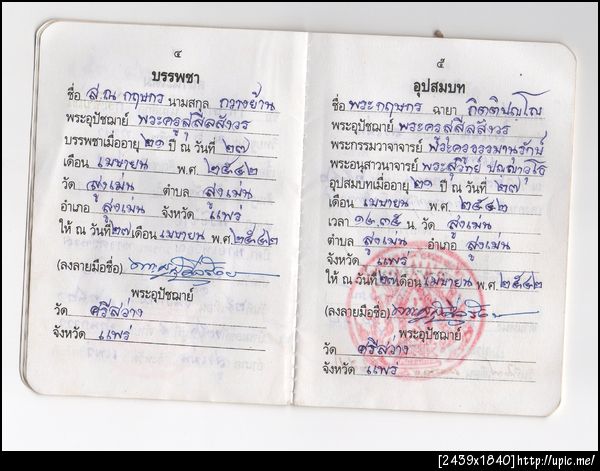 ๔
บรรพชา
ชื่อ สุณ กฤษกร นามสกุล กวางย้าน
พระอุปัชฌาย์ พระครูสุสีลสังวร
บรรพชาเมื่ออายุ ๒๑ ปี ณ วันที่ ๒๗
เดือน เมษายน พ.ศ ๒๕๔๒
วัด สูงเม่น ตำบล สูงเม่น
อำเภอ สูงเม่น จังหวัด แพร่
ให้ ณ วันที่ ๒๗ เดือน เมษายน พ.ศ ๒๕๔๒
(ลงลายมือชื่อ)
พระอุปัชฌาย์
วัด ศรีสว่าง
จังหวัด แพร่
๕
อุปสมบท
ชื่อ พระกฤษกร ฉายา กิตติปญฺโญ
พระอุปัชฌาย์ พระครูสุสีลสังวร
พระกรรมวาจาจารย์ พระครูธรรมานุรักษ์
พระอนุสาวนาจารย์ พระสุวิทย์
อุปสมบทเมื่ออายุ ๒๑ ปี ณ วันที่ ๒๗
เดือน เมษายน พ.ศ ๒๕๔๒
เวลา ๑๔.๓๕ น. วัด สูงเม่น
ตำบล สูงเม่น อำเภอ สูงเม่น
จังหวัด แพร่
ให้ ณ วันที่ ๒๗ เดือน เมษายน พ.ศ ๒๕๔๒
(ลงลายมือชื่อ)
พระอุปัชฌาย์
วัด ศรีสว่าง
จังหวัด แพร่
[2439x1840]http://upic.me/